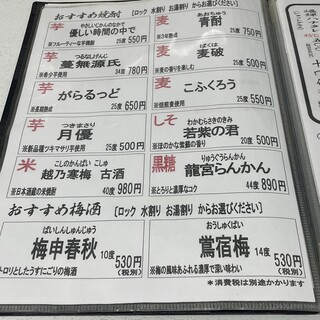 おすすめ焼酎 [ロック 水割り お湯割り からお選びください]
芋 やさしいじかんのなかで
優しい時間の中で
※フルーティーな芋焼酎 25度 550円
芋 つるなしげんじ
蔓無源氏
※希少芋使用 34度 780円
芋 がらるっど
※長期熟成 25度 650円
芋 つきまさり
月優
※新品種ツキマサリ芋使用 25度 500円
米 こしのかんばい こしゅ
越乃寒梅 古酒
※日本酒蔵の米焼酎 40度 980円
麦 あおちゅう
青酎
※3年熟成 25度 750円
麦 ばくは
麦破
※麦の香りを楽しむ 25度 500円
麦 こふくろう
※焙煎麦使用 25度 550円
しそ わかむらさきのきみ
若紫の君
※ほのかな紫蘇の香り 20度 500円
黒糖 りゅうぐうらんかん
龍宮らんかん
※とろりと濃厚なコク 44度 890円
おすすめ梅酒 [ロック 水割り お湯割り からお選びください]
ばいしんしゅんじゅう
梅申春秋 10度 530円
(税別)
トロリとしたうすにごりの梅酒
おうしゅくばい
鶯宿梅 14度 530円
(税別)
※梅の風味あふれる濃厚で深い味わい
*消費税は別途かかります